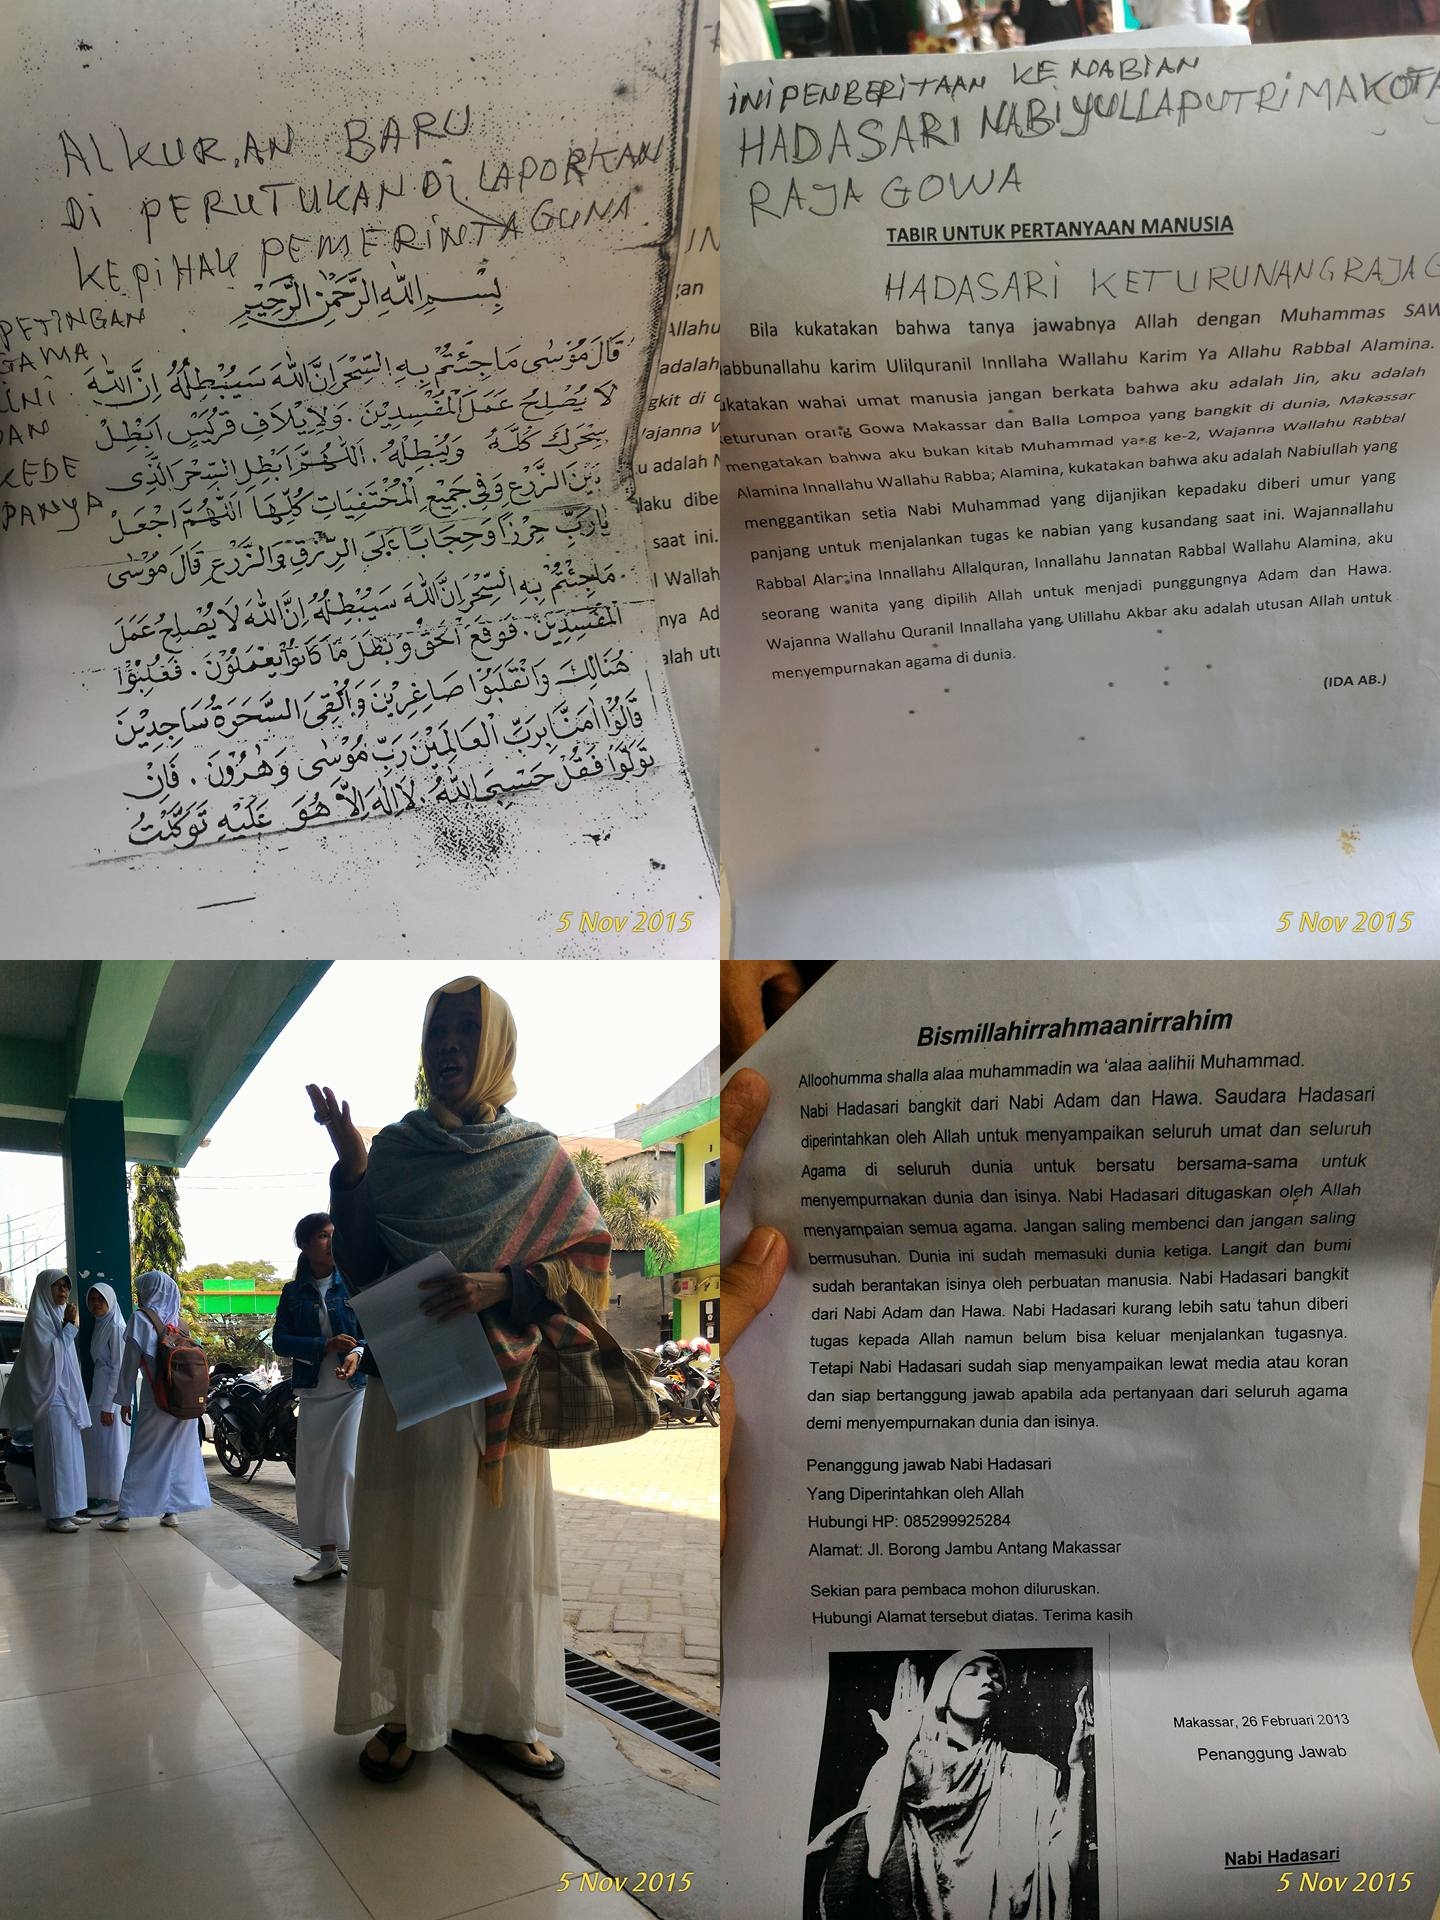 ALKUR,AN BARU
Di PERUTUKAN Di LAPORKAN
KEPiHAK PEMERINTAGUNA
PETINGAN
GAMA
iNi
DAN
KEDE
PANYA
بِسْمِ اللهِ الرَّحْمٰنِ الرَّحِيْمِ
قَالَ مُوْسٰى مَا جِئْتُمْ بِهِ السِّحْرُ اِنَّ اللهَ سَيُبْطِلُهُ اِنَّ اللهَ
لَا يُصْلِحُ عَمَلَ الْمُفْسِدِيْنَ. وَلِاِيْلَافِ قُرَيْشٍ اَبْطِلْ
سِحْرَكَ كُلَّهُ وَيُبْطِلُهُ. اَللّٰهُمَّ اَبْطِلِ السِّحْرَ الَّذِى
بَيْنَ الزَّرْعِ وَفِى جَمِيْعِ الْمُخْتَفِيَاتِ كُلِّهَا اَللّٰهُمَّ اجْعَلْ
يَارَبِّ حِرْزًا وَحِجَابًا عَلَى الرِّزْقِ وَالزَّرْعِ قَالَ مُوْسٰى
مَاجِئْتُمْ بِهِ السِّحْرُ اِنَّ اللهَ سَيُبْطِلُهُ اِنَّ اللهَ لَا يُصْلِحُ عَمَلَ
الْمُفْسِدِيْنَ. فَوَقَعَ الْحَقُّ وَبَطَلَ مَا كَانُوْا يَعْمَلُوْنَ. فَغُلِبُوْا
هُنَالِكَ وَانْقَلَبُوْا صَاغِرِيْنَ وَاُلْقِىَ السَّحَرَةُ سَاجِدِيْنَ
قَالُوْا اٰمَنَّا بِرَبِّ الْعَالَمِيْنَ رَبِّ مُوْسٰى وَهٰرُوْنَ. فَاِنْ
تَوَلَّوْا فَقُلْ حَسْبِىَ اللهُ. لَا اِلٰهَ اِلَّا هُوَ عَلَيْهِ تَوَكَّلْتُ
5 Nov 2015
iNi PENBERiTAAN KE NABIAN
HADASARI NABiYULLAPUTRiMAKOTA
RAJA GOWA
TABIR UNTUK PERTANYAAN MANUSIA
HADASARi KETURUNANGRAJA G
Bila kukatakan bahwa tanya jawabnya Allah dengan Muhammas SAW
abbunallahu karim Ulilquranil Innllaha Wallahu Karim Ya Allahu Rabbal Alamina.
ukatakan wahai umat manusia jangan berkata bahwa aku adalah Jin, aku adalah
eturunan orang Gowa Makassar dan Balla Lompoa yang bangkit di dunia, Makassar
mengatakan bahwa aku bukan kitab Muhammad yang ke-2, Wajanna Wallahu Rabbal
Alamina Innallahu Wallahu Rabba; Alamina, kukatakan bahwa aku adalah Nabiullah yang
menggantikan setia Nabi Muhammad yang dijanjikan kepadaku diberi umur yang
panjang untuk menjalankan tugas ke nabian yang kusandang saat ini. Wajannallahu
Rabbal Alamina Innallahu Allalquran, Innallahu Jannatan Rabbal Wallahu Alamina, aku
seorang wanita yang dipilih Allah untuk menjadi punggungnya Adam dan Hawa.
Wajanna Wallahu Quranil Innallaha yang Ulillahu Akbar aku adalah utusan Allah untuk
menyempurnakan agama di dunia.
(IDA AB.)
5 Nov 2015
5 Nov 2015
Bismillahirrahmaanirrahim
Alloohumma shalla alaa muhammadin wa 'alaa aalihii Muhammad.
Nabi Hadasari bangkit dari Nabi Adam dan Hawa. Saudara Hadasari
diperintahkan oleh Allah untuk menyampaikan seluruh umat dan seluruh
Agama di seluruh dunia untuk bersatu bersama-sama untuk
menyempurnakan dunia dan isinya. Nabi Hadasari ditugaskan oleh Allah
menyampaian semua agama. Jangan saling membenci dan jangan saling
bermusuhan. Dunia ini sudah memasuki dunia ketiga. Langit dan bumi
sudah berantakan isinya oleh perbuatan manusia. Nabi Hadasari bangkit
dari Nabi Adam dan Hawa. Nabi Hadasari kurang lebih satu tahun diberi
tugas kepada Allah namun belum bisa keluar menjalankan tugasnya.
Tetapi Nabi Hadasari sudah siap menyampaikan lewat media atau koran
dan siap bertanggung jawab apabila ada pertanyaan dari seluruh agama
demi menyempurnakan dunia dan isinya.
Penanggung jawab Nabi Hadasari
Yang Diperintahkan oleh Allah
Hubungi HP: 085299925284
Alamat: Jl. Borong Jambu Antang Makassar
Sekian para pembaca mohon diluruskan.
Hubungi Alamat tersebut diatas. Terima kasih
Makassar, 26 Februari 2013
Penanggung Jawab
Nabi Hadasari
5 Nov 2015